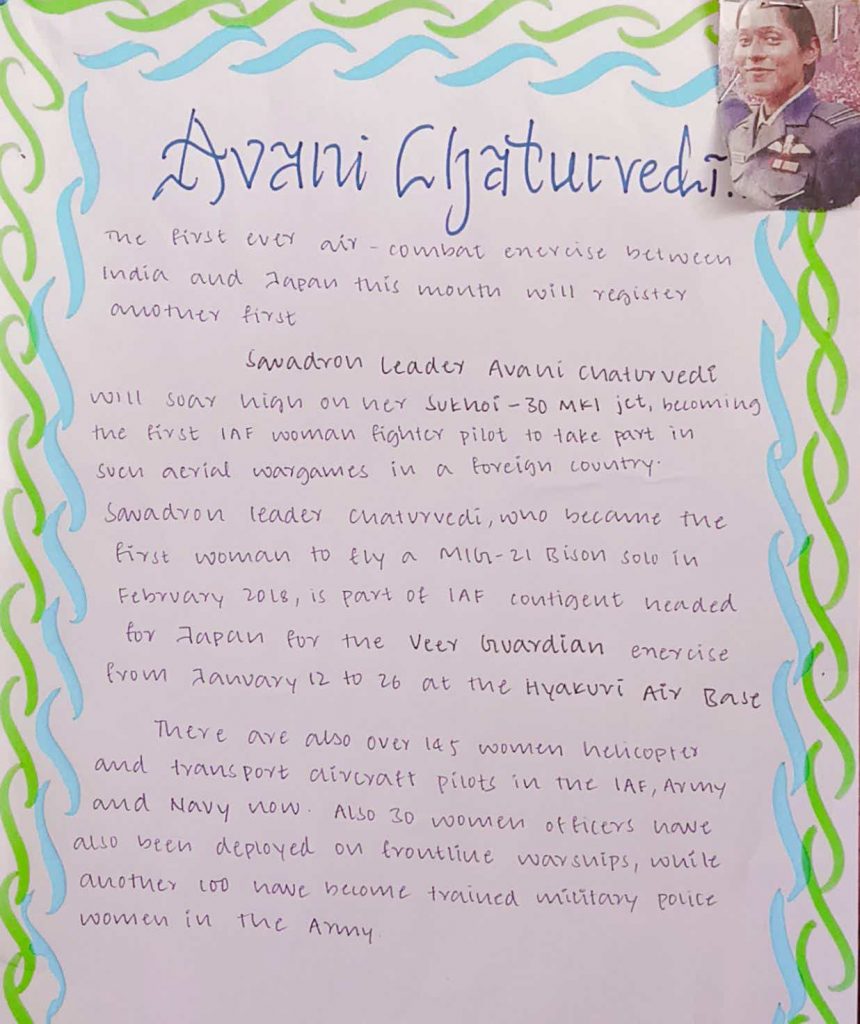 Avani Chaturvedi.
The first ever air-combat exercise between
India and Japan this month will register
another first
Squadron Leader Avani Chaturvedi
will soar high on her Sukhoi-30 MKI jet, becoming
the first IAF woman fighter pilot to take part in
such aerial wargames in a foreign country.
Squadron leader chaturvedi, who became the
first woman to fly a MIG-21 Bison solo in
February 2018, is part of IAF contigent headed
for Japan for the Veer Guardian exercise
from January 12 to 26 at the Hyakuri Air Base
There are also over 145 women helicopter
and transport aircraft pilots in the IAF, Army
and Navy now. Also 30 women officers have
also been deployed on frontline warships, while
another 100 have become trained military police
women in the Army.